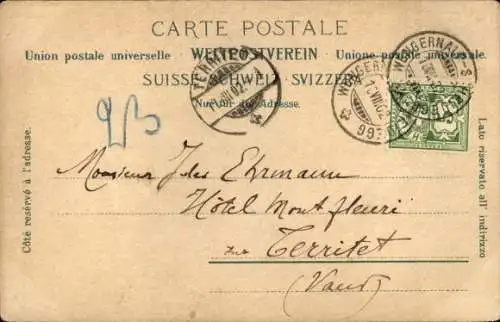 CARTE POSTALE
Union postale universelle WELTPOSTVEREIN Unione postale universale
SUISSE SCHWEIZ SVIZZERA
Nur für die Adresse.
TERRITET
WENGERNALP
WENGERNALP
Côté resérvé à l'adresse.
Lato riservato all' indirizzo
Monsieur Jules Ehrmann
Hôtel Mont fleuri
Territet
(Vaud)